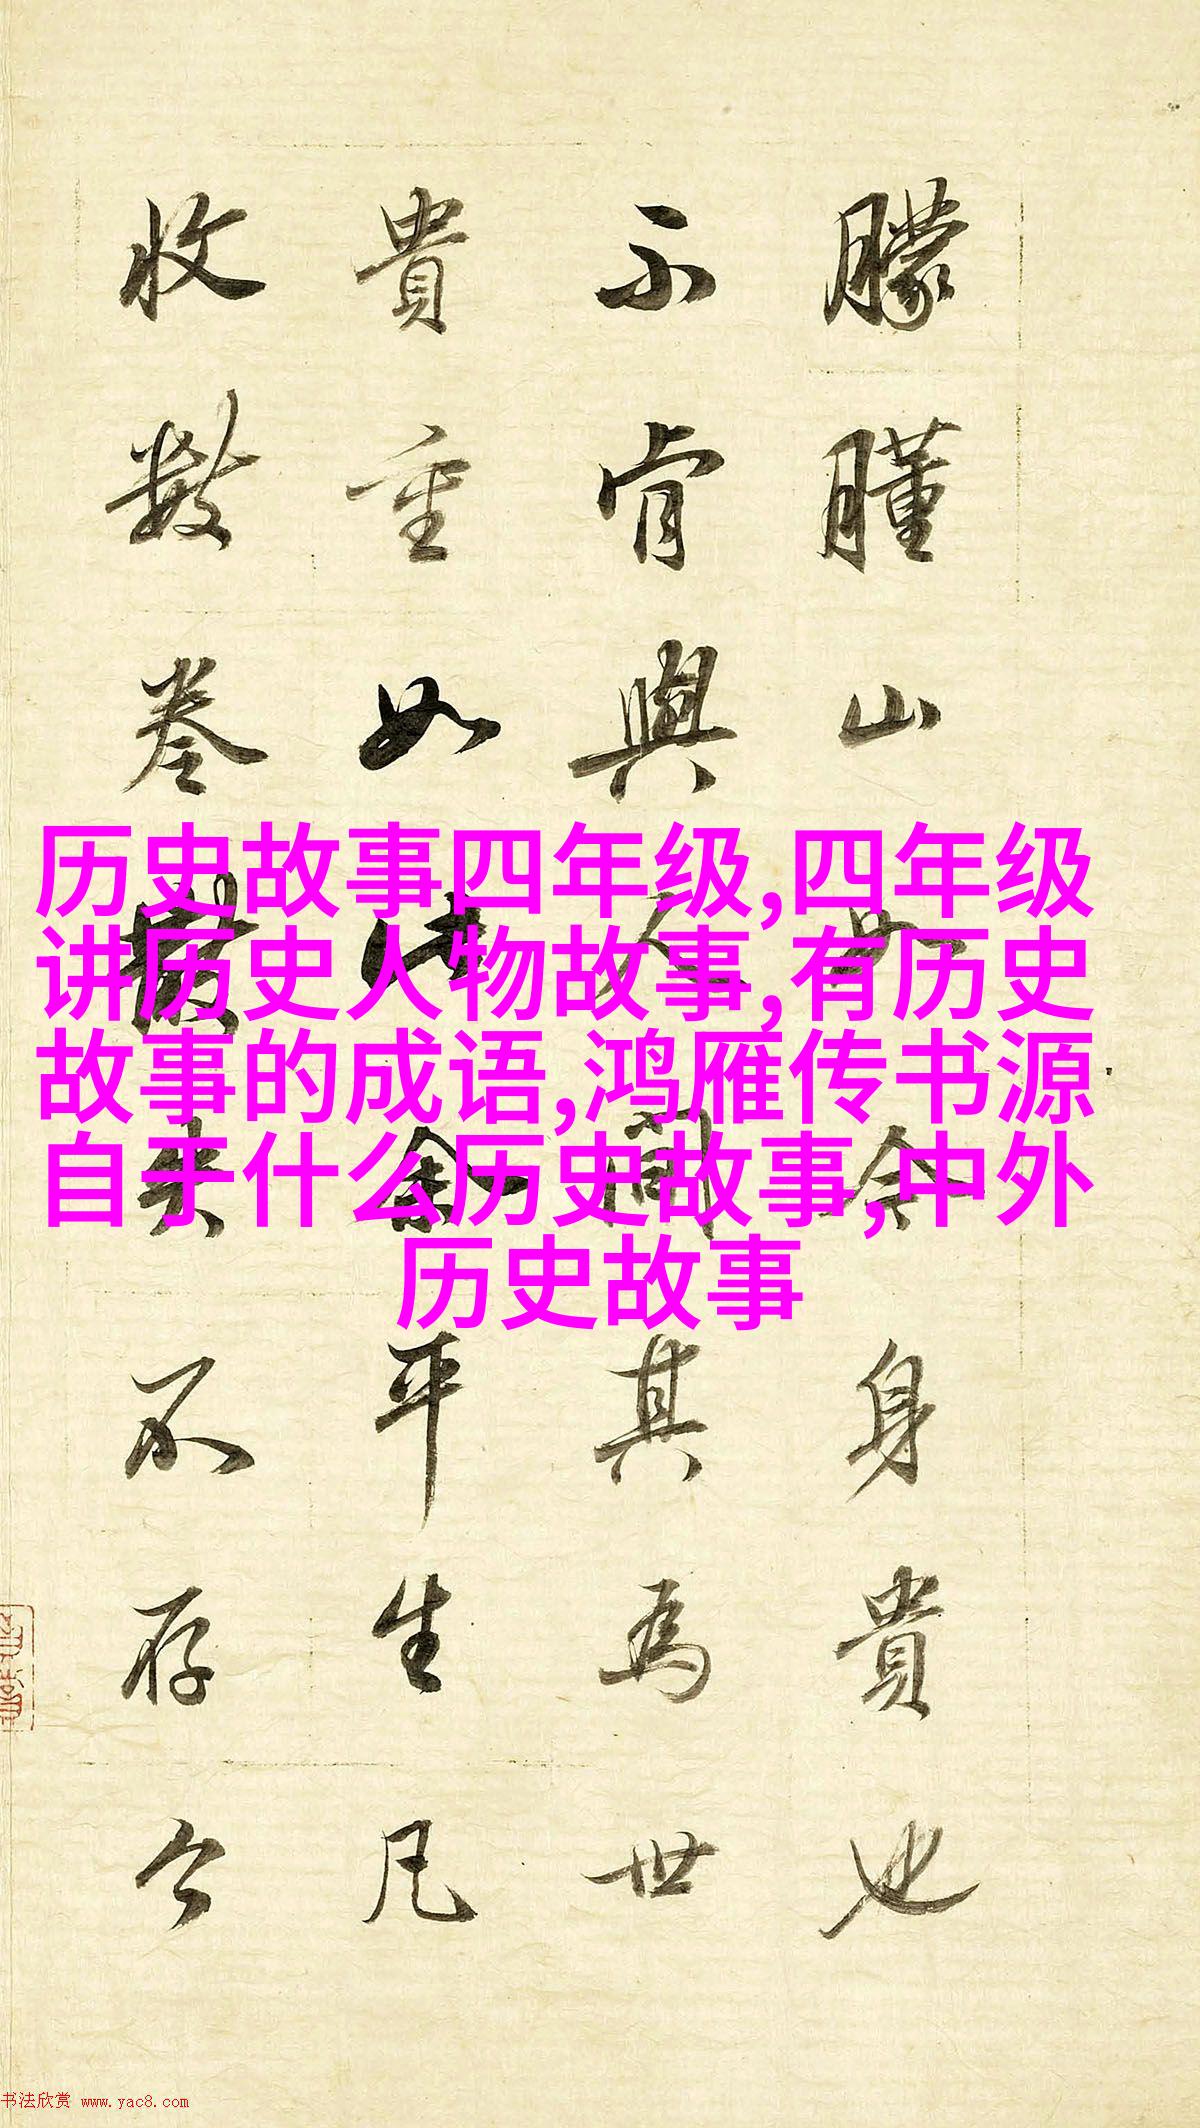 历史故事四年级,四年级
讲历史人物故事,有历史
故事的成语,鸿雁传书源
自于什么历史故事,中外
历史故事
朦山身貴也
不肯與人間其爲世
貴重如此余平生凡
收數卷失不存今
书法欣赏 www.yac8.com